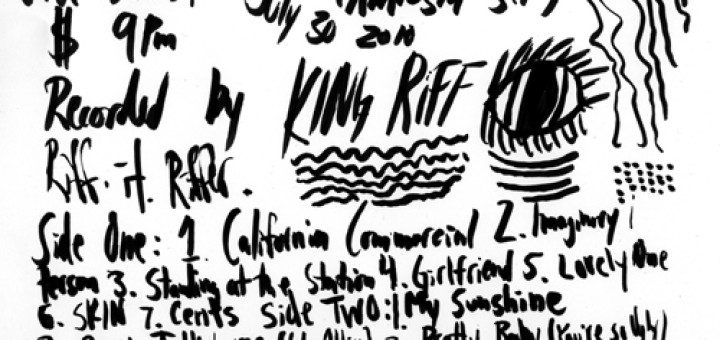 $ 9pm July 30 2010
Recorded by KING RiFF
Riff. it. Riffer.
Side One: 1. California Commercial 2. Imaginary
Person 3. Standing at the Station 4. Girlfriend 5. Lovely One
6. SKIN 7. Cents Side TWO: 1 My Sunshine
Pretty Baby (You're so Ugly)